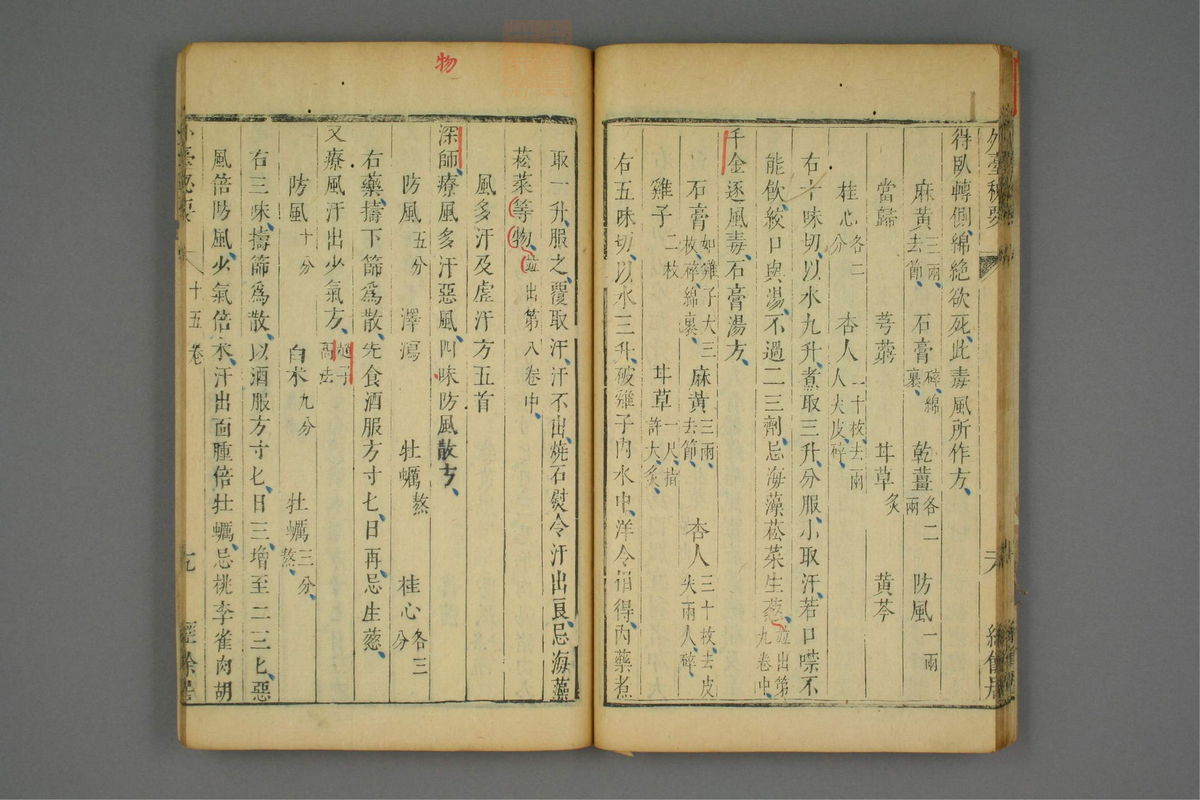 外臺秘要
得臥轉側綿絕欲死此毒風所作方
麻黃三兩去節 石膏碎綿裹 乾薑各二兩 防風一兩
當歸 芎藭 甘草炙 黃芩
桂心各二分 杏人二十枚去兩人尖皮碎
右十味切以水九升煮取三升分服小取汗若口噤不
能飲絞口與湯不過二三劑忌海藻菘菜生蔥並出第九卷中
千金逐風毒石膏湯方
石膏如雞子大三枚碎綿裹 麻黃三兩去節 杏人三十枚去皮尖兩人碎
雞子二枚 甘草一尺指許大炙
右五味切以水三升破雞子內水中洋令相得內藥煮
取一升服之覆取汗汗不出燒石熨令汗出良忌海藻
菘菜等物並出第八卷中
物
風多汗及虛汗方五首
深師療風多汗惡風四味防風散方
防風五分 澤瀉 牡蠣熬 桂心各三分
右藥擣下篩為散先食酒服方寸匕日再忌生蔥
又療風汗出少氣方
防風十分 白朮九分 牡蠣三分熬
右三味擣篩為散以酒服方寸匕日三增至二三匕惡
風倍防風少氣倍朮汗出面腫倍牡蠣忌桃李雀肉胡
外臺秘要 十五卷 經餘居